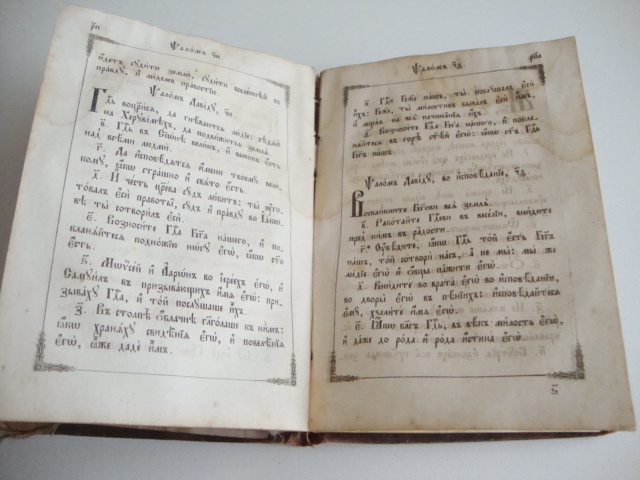 Ѱало́мъ ч҃и
и҆́детъ сꙋди́ти землѝ, сꙋди́ти вселе́ннѣй въ
пра́вдꙋ, и҆ лю́демъ пра́востїю.
Ѱало́мъ Даві́дꙋ, ч҃и.
Гдⷭ҇ь воцр҃и́сѧ, да гнѣ́ваютсѧ лю́дїе: сѣдѧ́й
на Херꙋві́мѣхъ, да подви́житсѧ землѧ̀.
в҃. Гдⷭ҇ь въ Сїѡ́нѣ вели́къ, и҆ высо́къ є҆́сть
над̾ всѣ́ми людьмѝ.
г҃. Да и҆сповѣ́дѧтсѧ и҆́мени твоемꙋ̀ вели́-
комꙋ, ꙗ҆́кѡ стра́шно и҆ свѧ́то є҆́сть.
д҃. И҆ че́сть цр҃е́ва сꙋ́дъ лю́битъ: ты̀ ᲂу҆гот-
това́лъ є҆сѝ правѡты̀, сꙋ́дъ и҆ пра́вдꙋ во І҆а́кѡ-
вѣ ты̀ сотвори́лъ є҆сѝ.
є҃. Возноси́те Гдⷭ҇а Бг҃а на́шегѡ, и҆ по-
кланѧ́йтесѧ подно́жїю но́гꙋ є҆гѡ̀, ꙗ҆́кѡ ст҃о
є҆́сть.
ѕ҃. Мѡѷсе́й и҆ А҆арѡ́нъ во і҆ере́ехъ є҆гѡ̀, и҆
Самꙋи́лъ въ призыва́ющихъ и҆́мѧ є҆гѡ̀: при-
зыва́хꙋ Гдⷭ҇а, и҆ то́й послꙋ́шаше и҆̀хъ.
з҃. Въ столпѣ̀ ѻ҆́блачнѣ гл҃го́лаше къ ни̑мъ:
ꙗ҆́кѡ хранѧ́хꙋ свидѣ̑нїѧ є҆гѡ̀, и҆ повелѣ̑нїѧ
є҆гѡ̀, ꙗ҆̀же дадѐ и҆̀мъ.
Ѱало́мъ ч҃ѳ
рк҃а
и҃. Гдⷭ҇и Бж҃е на́шъ, ты̀ послꙋ́шалъ є҆сѝ
и҆́хъ: Бж҃е, ты̀ ми́лостивъ быва́лъ є҆сѝ и҆̀мъ,
и҆ мща́ѧ на всѧ̑ начина̑нїѧ и҆́хъ.
ѳ҃. Возноси́те Гдⷭ҇а Бг҃а на́шегѡ, и҆ покла-
нѧ́йтесѧ въ горѣ̀ ст҃ѣ́й є҆гѡ̀: ꙗ҆́кѡ ст҃ъ Гдⷭ҇ь
Бг҃ъ на́шъ.
Ѱало́мъ Даві́дꙋ, во и҆сповѣ́данїе, ч҃ѳ.
Воскли́кните Бг҃ови всѧ̀ землѧ̀.
в҃. Рабо́тайте Гдⷭ҇еви въ весе́лїи, вни́дите
пред̾ ни́мъ въ ра́дости.
г҃. Оу҆вѣ́дите, ꙗ҆́кѡ Гдⷭ҇ь то́й є҆́сть Бг҃ъ
на́шъ, то́й сотворѝ на́съ, а҆ не мы̀: мы́ же
лю́дїе є҆гѡ̀ и҆ ѻ҆́вцы па́жити є҆гѡ̀.
д҃. Вни́дите во врата̀ є҆гѡ̀ во и҆сповѣ́данїи,
во дворы̀ є҆гѡ̀ въ пѣ́нїихъ: и҆сповѣ́дайтесѧ
є҆мꙋ̀, хвали́те и҆́мѧ є҆гѡ̀.
є҃. Ꙗ҆́кѡ бл҃гъ Гдⷭ҇ь, въ вѣ́къ ми́лость є҆гѡ̀,
и҆ да́же до ро́да и҆ ро́да и҆́стина є҆гѡ̀.